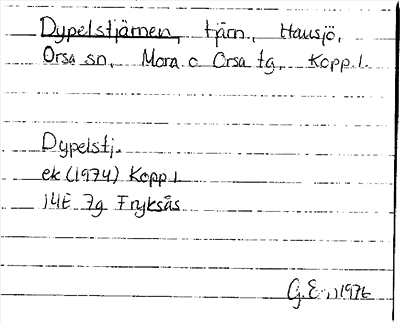 Dypelstjärnen, tjärn, Hansjö,
Orsa sn, Mora o Orsa tg, Kopp.l.
Dypelstj.
ek (1974) Kopp l
14E 7g Fryksås
G.E. 1976